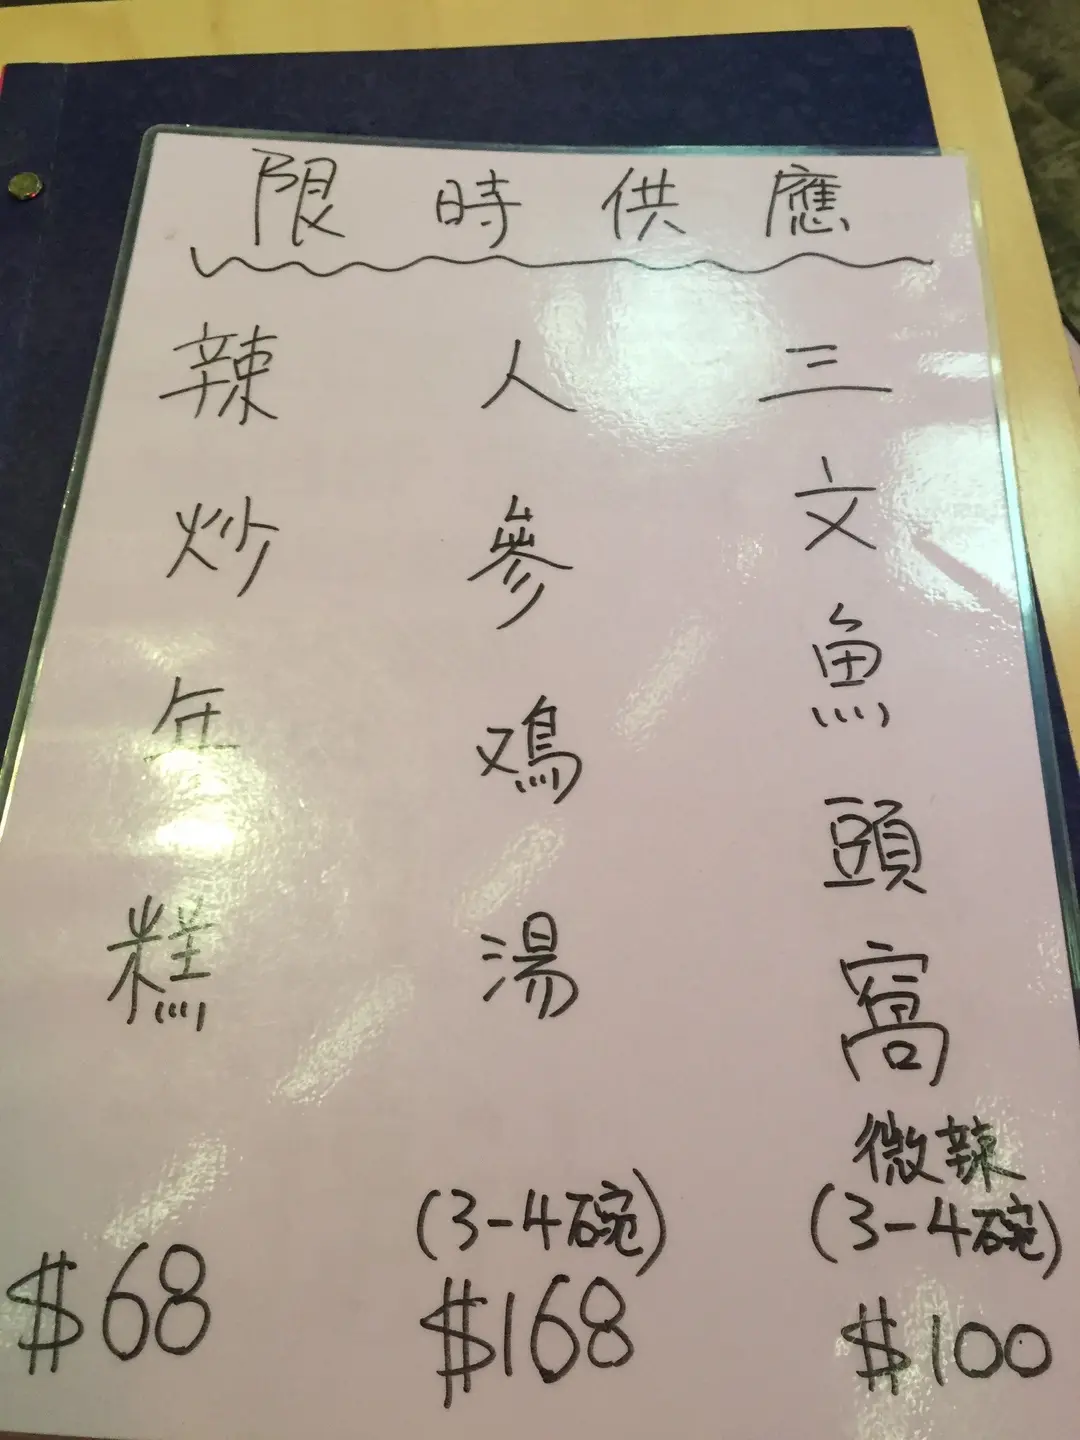 限時供應
三文魚頭窩
微辣
(3-4碗)
$100
人參鳮湯
(3-4碗)
$168
辣炒年糕
$68